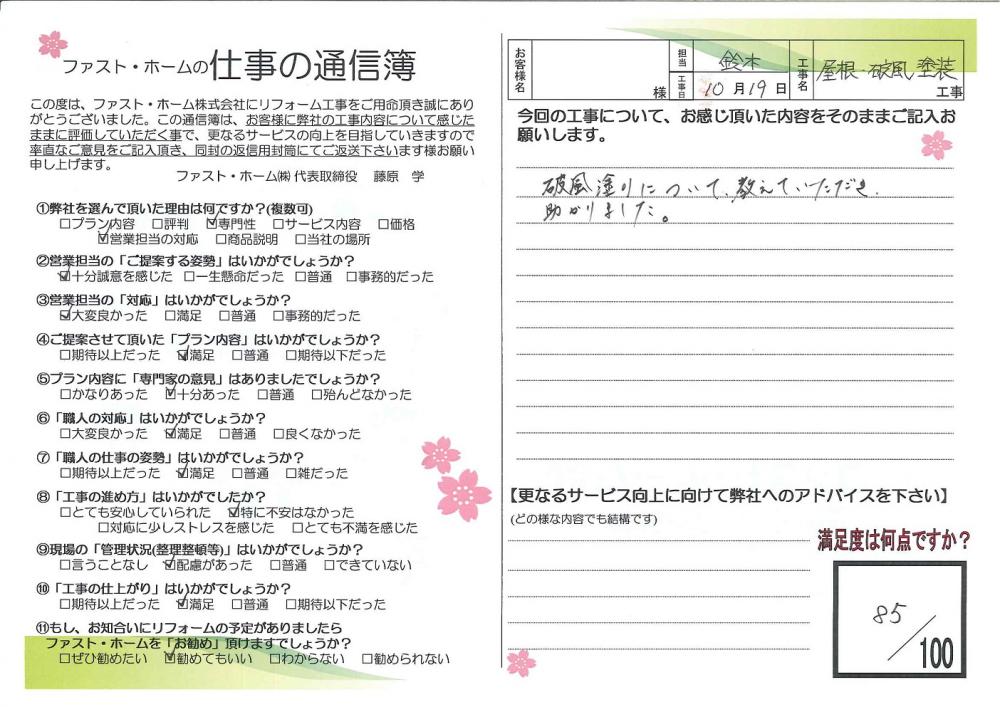 ファスト・ホームの仕事の通信簿
この度は、ファスト・ホーム株式会社にリフォーム工事をご用命頂き誠にあり
がとうございました。この通信簿は、お客様に弊社の工事内容について感じた
ままに評価していただく事で、更なるサービスの向上を目指していきますので
率直なご意見をご記入頂き、同封の返信用封筒にてご返送下さいます様お願い
申し上げます。
ファスト・ホーム㈱ 代表取締役 藤原 学
①弊社を選んで頂いた理由は何ですか？(複数可)
□プラン内容 □評判 ☑専門性 □サービス内容 □価格
☑営業担当の対応 □商品説明 □当社の場所
②営業担当の「ご提案する姿勢」はいかがでしょうか？
☑十分誠意を感じた □一生懸命だった □普通 □事務的だった
③営業担当の「対応」はいかがでしょうか？
☑大変良かった □満足 □普通 □事務的だった
④ご提案させて頂いた「プラン内容」はいかがでしょうか？
□期待以上だった ☑満足 □普通 □期待以下だった
⑤プラン内容に「専門家の意見」はありましたでしょうか？
□かなりあった ☑十分あった □普通 □殆んどなかった
⑥「職人の対応」はいかがでしょうか？
□大変良かった ☑満足 □普通 □良くなかった
⑦「職人の仕事の姿勢」はいかがでしょうか？
□期待以上だった ☑満足 □普通 □雑だった
⑧「工事の進め方」はいかがでしたか？
□とても安心していられた ☑特に不安はなかった
□対応に少しストレスを感じた □とても不満を感じた
⑨現場の「管理状況(整理整頓等)」はいかがでしょうか？
□言うことなし ☑配慮があった □普通 □できていない
⑩「工事の仕上がり」はいかがでしょうか？
□期待以上だった ☑満足 □普通 □期待以下だった
⑪もし、お知合いにリフォームの予定がありましたら
ファスト・ホームを「お勧め」頂けますでしょうか？
□ぜひ勧めたい ☑勧めてもいい □わからない □勧められない
お客様名 様 担当 鈴木 工事日 10月19日 工事名 屋根・破風塗装 工事
今回の工事について、お感じ頂いた内容をそのままご記入お
願いします。
破風塗りについて、教えていただき、
助かりました。
【更なるサービス向上に向けて弊社へのアドバイスを下さい】
(どの様な内容でも結構です)
満足度は何点ですか？
85/100